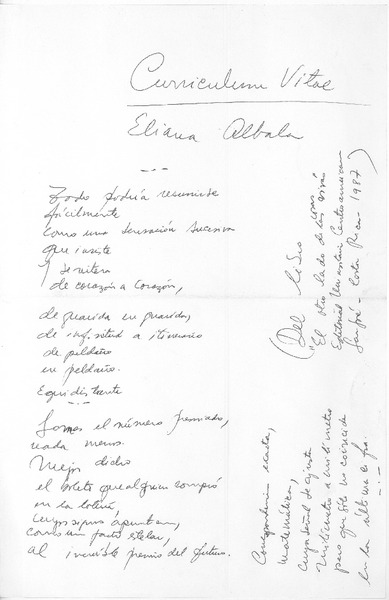 Curriculum Vitae
Eliana Albala
Todo podría resumirse
fácilmente
como una sensación sucesiva
que insiste
y se reitera
de corazón a corazón,
de guarida en guarida,
de a itinerario
de peldaño
en peldaño.
Equidistante
Somos el número premiado,
nada menos.
Mejor dicho
el boleto que alguien compró
en la lotería,
cuyos signos apuntan,
como un faro estelar,
al increíble premio del futuro.
Correspondencia exacta,
matemática,
cuya señal se ajusta
milímetro a milímetro
para que sólo no coincida
en la última cifra.
(Del libro
"El otro lado de las cosas vivas"
Editorial Universitaria Centroamericana
San José - Costa Rica - 1987)